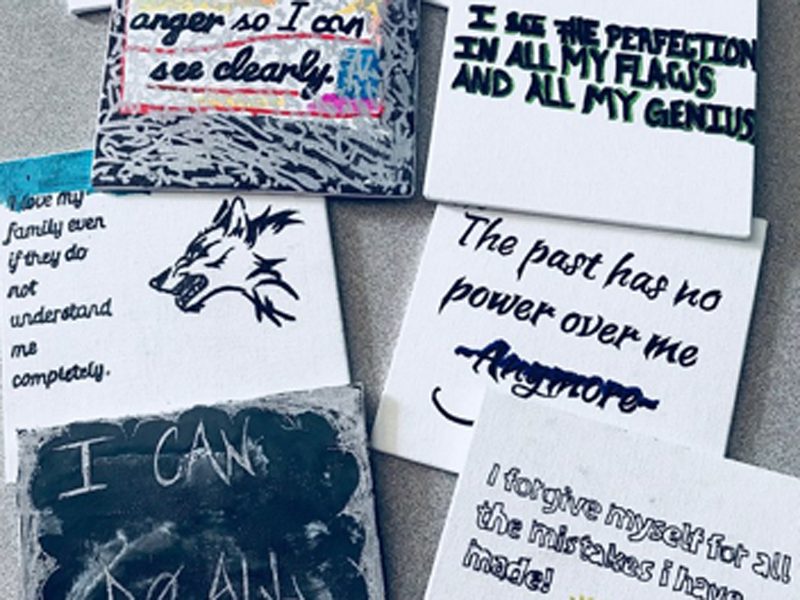 anger so I can
see clearly.
I SEE THE PERFECTION
IN ALL MY FLAWS
AND ALL MY GENIUS
I love my
family even
if they do
not
understand
me
completely.
The past has no
power over me
Anymore
I CAN
DO
I forgive myself for all
the mistakes i have
made!